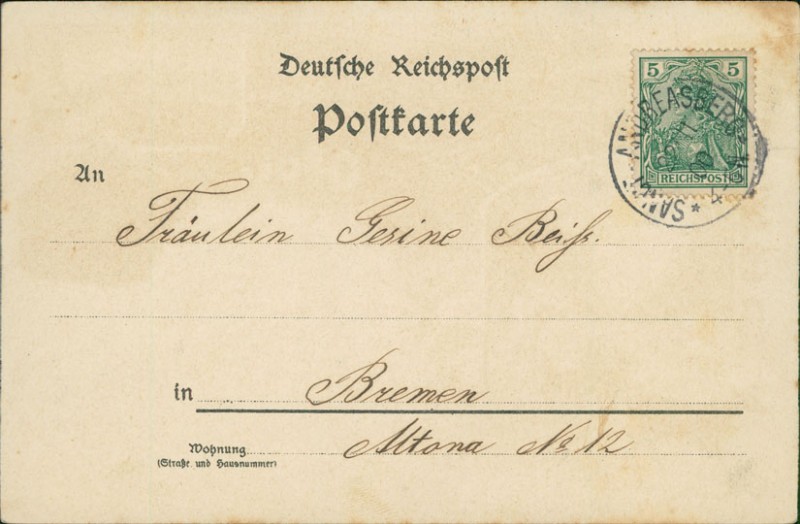 Deutsche Reichspost
Postkarte
5 5
REICHSPOST
SANKT ANDREASBERG
An
Fräulein Gesine Beiß.
in Bremen
Altona No 12
Wohnung
(Straße und Hausnummer)